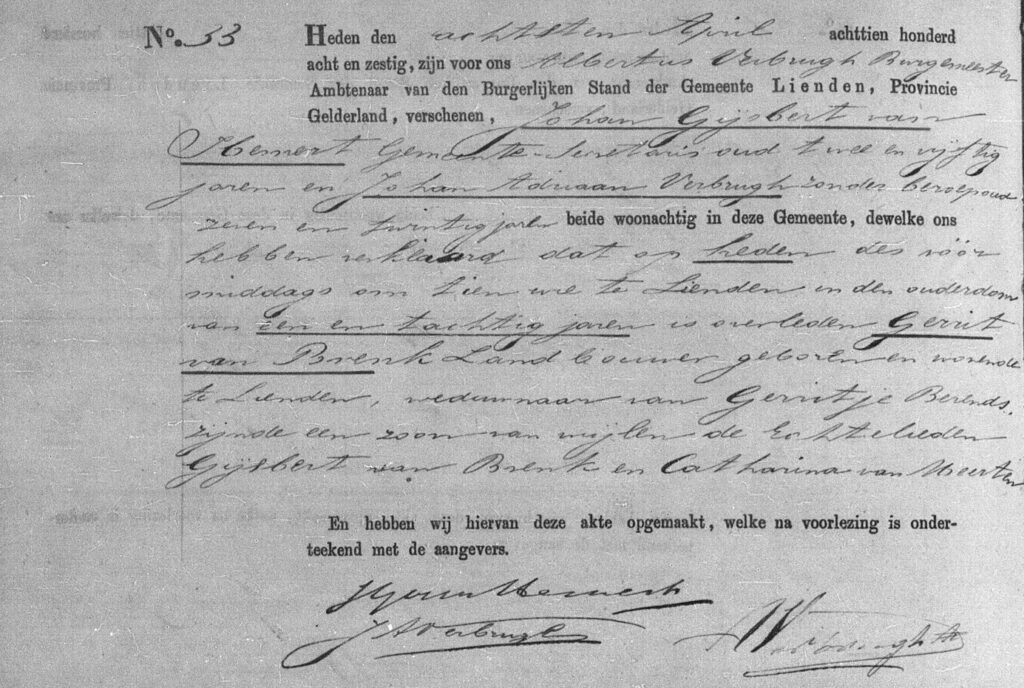 No. 33 Heden den achtsten April achttien honderd
acht en zestig, zijn voor ons Albertus Verbrugh Burgemeester
Ambtenaar van den Burgerlijken Stand der Gemeente Lienden, Provincie
Gelderland, verschenen, Johan Gijsbert van
Hemert Gemeente-Secretaris oud twee en vijftig
jaren en Johan Adriaan Verbrugh zonder beroep oud
zeven en twintig jaren beide woonachtig in deze Gemeente, dewelke ons
hebben verklaard dat op heden des vóór
middags om tien ure te Lienden in den ouderdom
van een en tachtig jaren is overleden Gerrit
van Brenk Landbouwer geboren en wonende
te Lienden, weduwnaar van Gerritje Berends.
zijnde een zoon van wijlen de Echtelieden
Gijsbert van Brenk en Catharina van Meerten
En hebben wij hiervan deze akte opgemaakt, welke na voorlezing is onder-
teekend met de aangevers.
JGvanHemert
JAVerbrugh
AVerbrugh